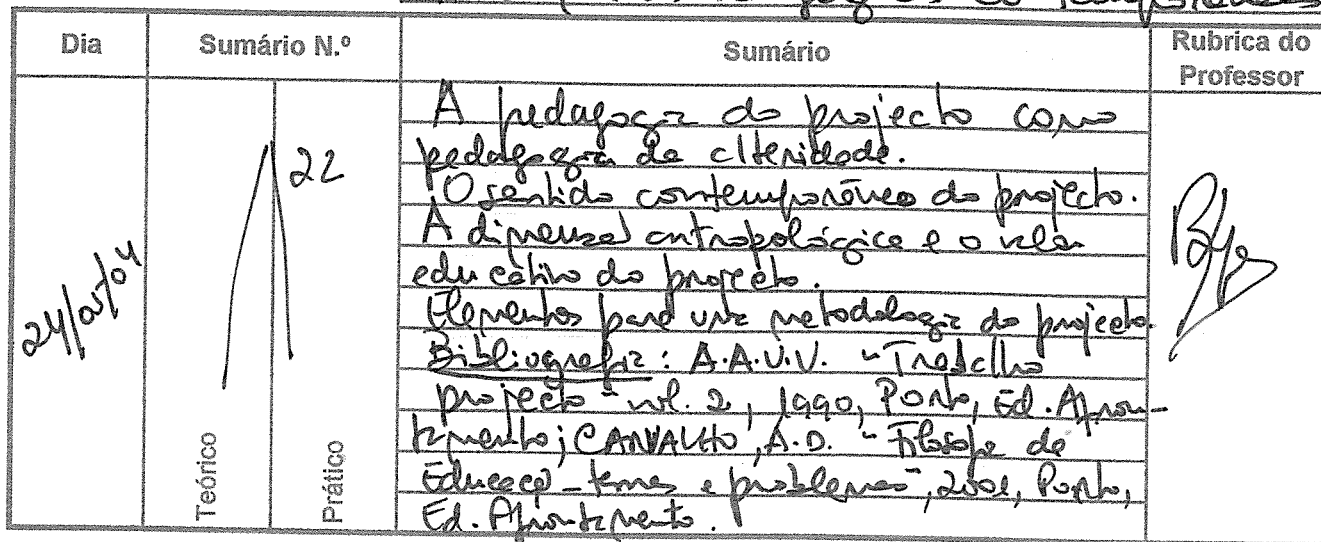 Dia Sumário N.º Sumário Rubrica do Professor
A pedagogia do projecto como
pedagogia da alteridade.
O sentido contemporâneo do projecto.
A dimensão antropológica e o valor
educativo do projecto.
Elementos para uma metodologia do projecto.
Bibliografia: A.A.V.V. - Trabalho
projecto - vol. 2, 1990, Porto, Ed. Afron-
tamento; CARVALHO, A.D. - Filosofia da
Educação - temas e problemas -, 2001, Porto,
Ed. Afrontamento.
24/05/04
22
Teórico
Prático